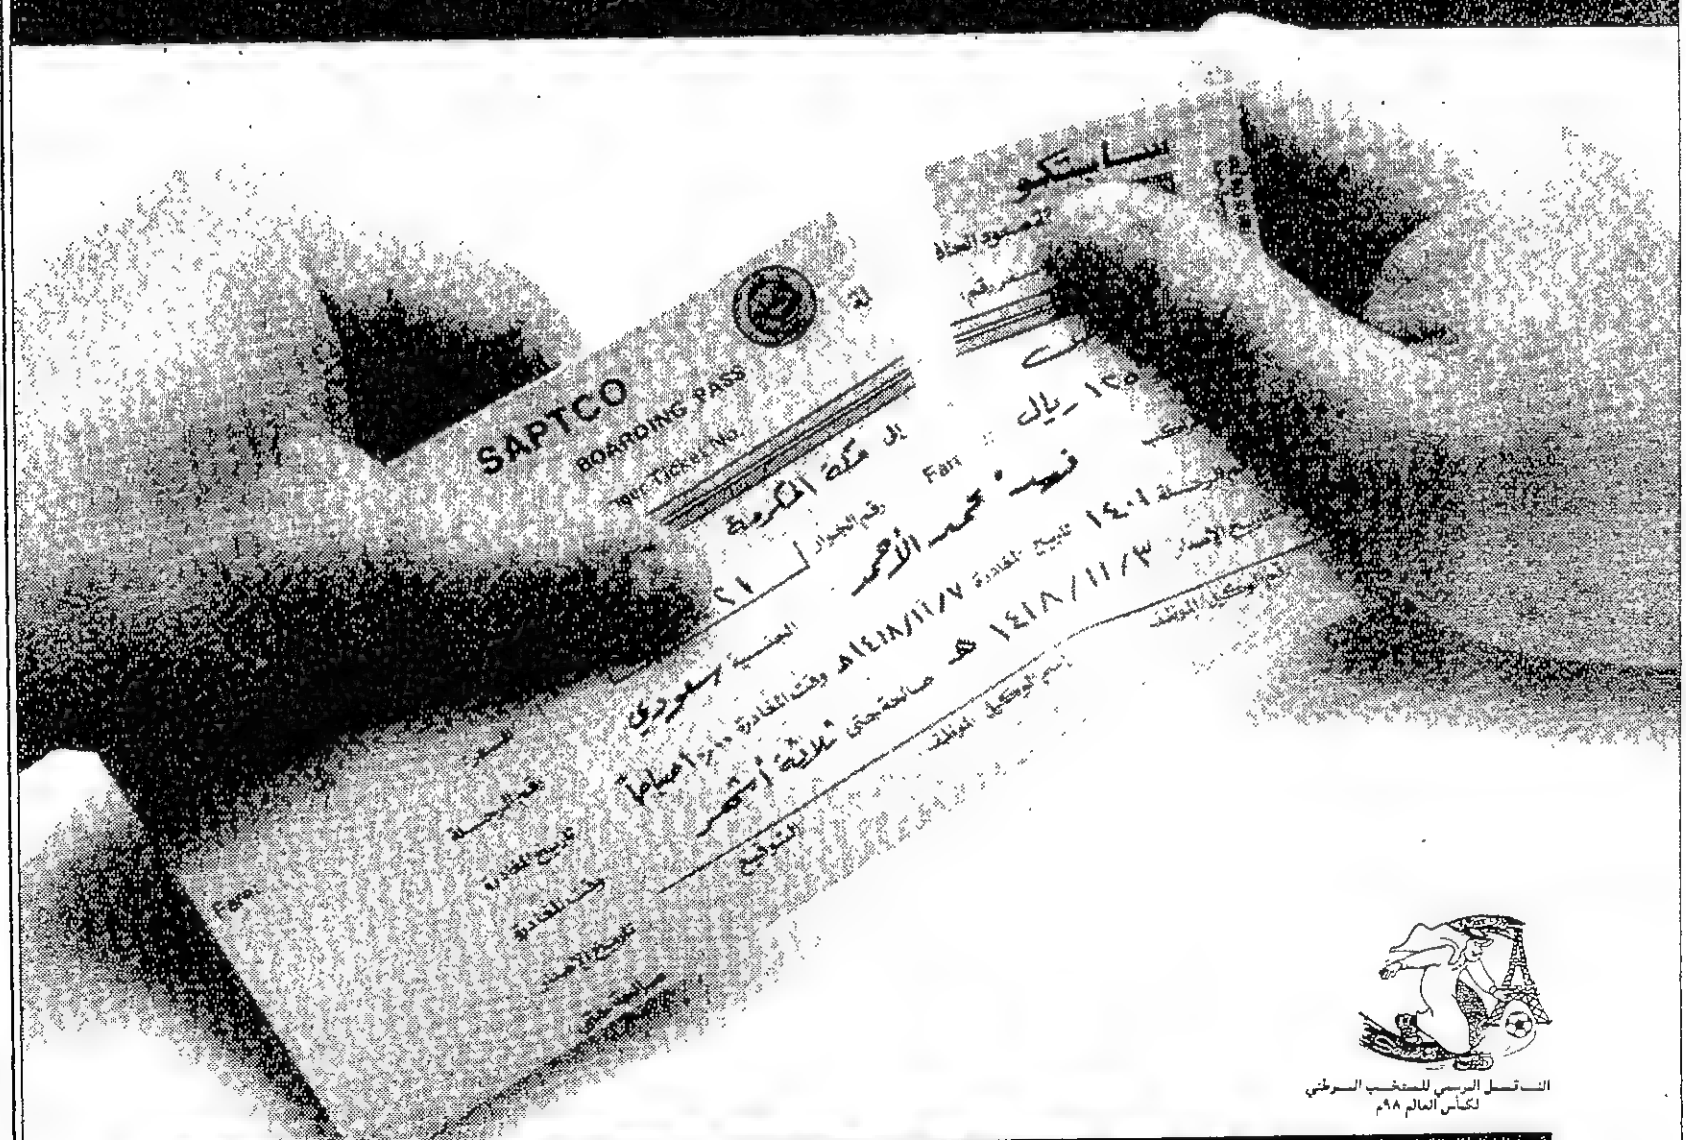 سابتكو
SAPTCO
BOARDING PASS
Ticket No.
إلى مكة المكرمة
١٢٥ ريال
Fare
رقم الجواز
فهد محمد الأحمد
الجنسية سعودي
١٤٠٤ تاريخ المغادرة ١٤١٨/١١/٧هـ وقت المغادرة
تاريخ الإصدار ١٤١٨/١١/٣ هـ صالحة حتى ثلاثة أشهر
اسم الوكيل الموظف
التوقيع
السعر
Fare
رقم الرحلة
تاريخ المغادرة
وقت المغادرة
تاريخ الإصدار
صالحة حتى
الناقل الرسمي للمنتخب الوطني
لكأس العالم ٩٨م